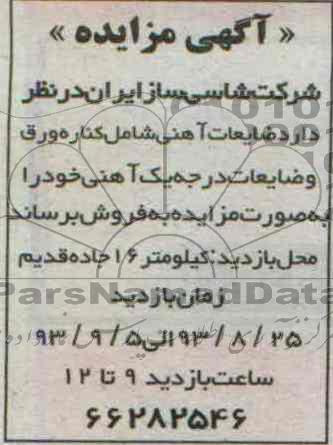 « آگهی مزایده »
شرکت شاسی ساز ایران در نظر
دارد ضایعات آهنی شامل کناره ورق
و ضایعات درجه یک آهنی خود را
به صورت مزایده به فروش برساند
محل بازدید: کیلومتر ۱۶ جاده قدیم
ParsNamadData
زمان بازدید
۹۳/۸/۲۵ الی ۹۳/۹/۵
ساعت بازدید ۹ تا ۱۲
۶۶۲۸۲۵۴۶